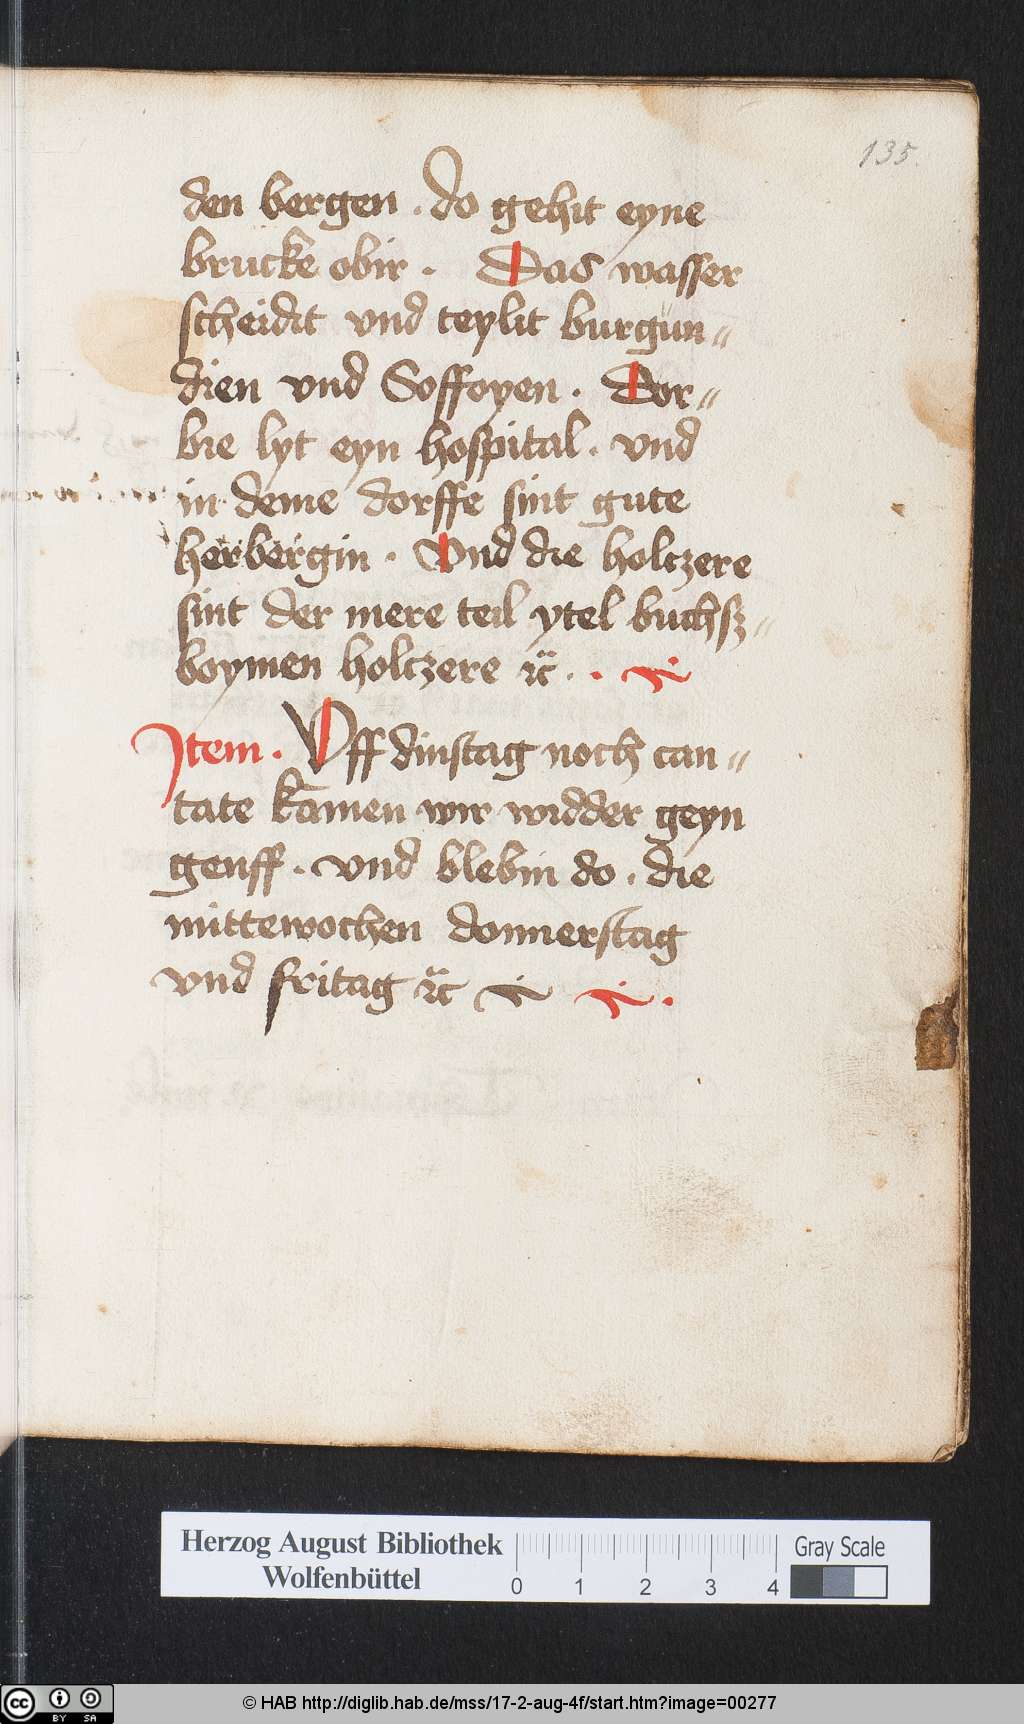 135.
den bergen . do gehit eyne
brucke obir . Das wasser
scheidit vnd teylit burgun〃
dien vnd Soffoyen . Dor〃
bie lyt eyn hospital . vnd
in deme dorffe sint gute
herbergin . Vnd die holczere
sint der mere teil ytel buchsz〃
boymen holczere ꝛc̈ . .
Item . Vff dinstag noch can〃
tate kamen wir widder geyn
genff . vnd blebin do . die
mittewochen donnerstag
vnd fritag ꝛc̈
Herzog August Bibliothek
Wolfenbüttel
0 1 2 3 4
Gray Scale
cc BY SA
© HAB http://diglib.hab.de/mss/17-2-aug-4f/start.htm?image=00277